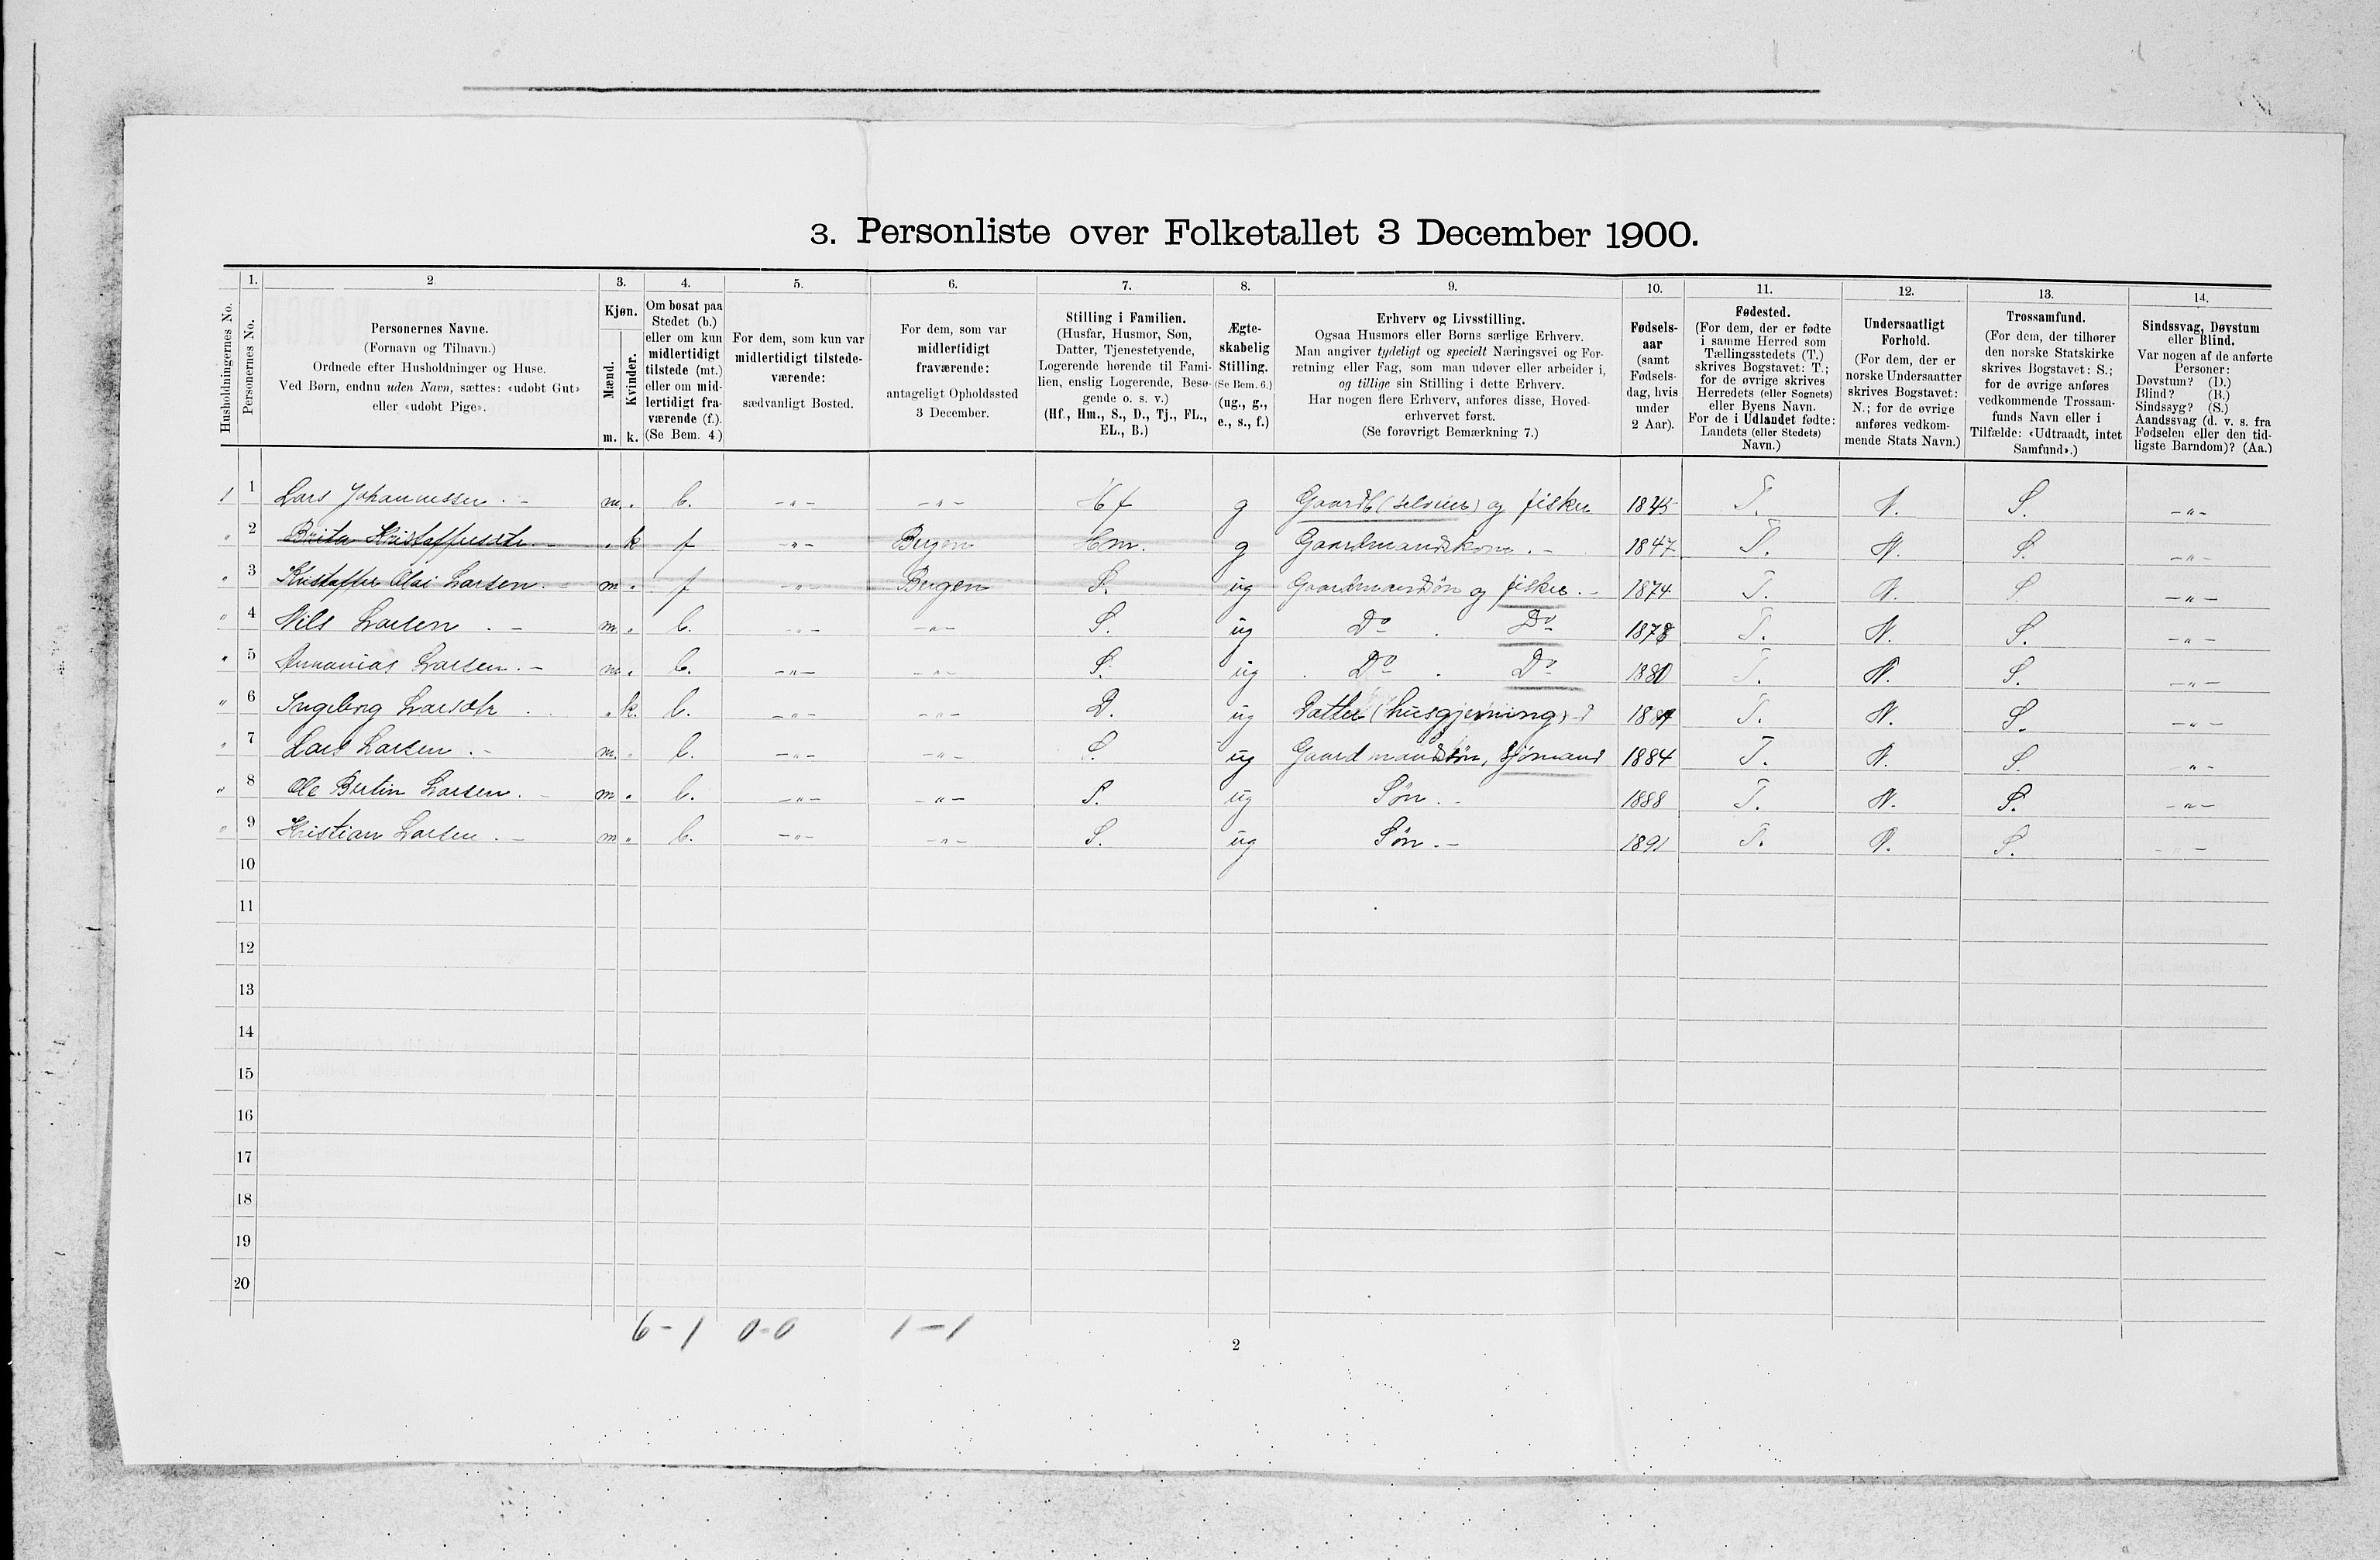 3. Personliste over Folketallet 3 December 1900.
Husholdningernes No.
1.
Personernes No.
2
Personernes Navne.
(Fornavn og Tilnavn.)
Ordnede efter Husholdninger og Huse.
Ved Børn, endnu uden Navn, sættes: «udøbt Gut»
eller «udøbt Pige».
3.
Kjøn.
Mænd.
Kvinder.
m. k.
4.
Om bosat paa
Stedet (b.)
eller om kun
midlertidigt
tilstede (mt.)
eller om mid-
lertidigt fra-
værende (f.).
(Se Bem. 4.)
5.
For dem, som kun var
midlertidigt tilstede-
værende:
sædvanligt Bosted.
6.
For dem, som var
midlertidigt
fraværende:
antageligt Opholdssted
3 December.
7.
Stilling i Familien.
(Husfar, Husmor, Søn,
Datter, Tjenestetyende,
Logerende hørende til Fami-
lien, enslig Logerende, Besø-
gende o. s. v.)
(Hf., Hm., S., D., Tj., FL.,
EL., B.)
8.
Ægte-
skabelig
Stilling.
(Se Bem. 6.)
(ug., g.,
e., s., f.)
9.
Erhverv og Livsstilling.
Ogsaa Husmors eller Børns særlige Erhverv.
Man angiver tydeligt og specielt Næringsvei og For-
retning eller Fag, som man udøver eller arbeider i,
og tillige sin Stilling i dette Erhverv.
Har nogen flere Erhverv, anføres disse, Hoved-
erhvervet først.
(Se forøvrigt Bemærkning 7.)
10.
Fødsels-
aar
(samt
Fødsels-
dag, hvis
under
2 Aar).
11.
Fødested.
(For dem, der er fødte
i samme Herred som
Tællingsstedets (T.)
skrives Bogstavet: T.;
for de øvrige skrives
Herredets (eller Sognets)
eller Byens Navn.
For de i Udlandet fødte:
Landets (eller Stedets)
Navn.)
12.
Undersaatligt
Forhold.
(For dem, der er
norske Undersaatter
skrives Bogstavet:
N.; for de øvrige
anføres vedkom-
mende Stats Navn.)
13.
Trossamfund.
(For dem, der tilhører
den norske Statskirke
skrives Bogstavet: S.;
for de øvrige anføres
vedkommende Trossam-
funds Navn eller i
Tilfælde: «Udtraadt, intet
Samfund».)
14.
Sindssvag, Døvstum
eller Blind.
Var nogen af de anførte
Personer:
Døvstum? (D.)
Blind? (B.)
Sindssyg? (S.)
Aandssvag (d. v. s. fra
Fødselen eller den tid-
ligste Barndom)? (Aa.)
1 1 Lars Johannessen . - m. „ b. -„- -„- Hf g Gaardb (selveier) og fisker 1845 T. N. S. -„-
„ 2 Brita Kristaffersdtr. - „ k f -„- Bergen Hm. g Gaardmandskone. - 1847 T. N. S. -„-
„ 3 Kristaffer Olai Larsen. - m „ f -„- Bergen S. ug Gaardmandsøn og fisker. - 1874 T. N. S -„-
„ 4 Nils Larsen . - m. „ b. -„- -„- S. ug Do . Do 1878 T. N. S. -„-
„ 5 Annanias Larsen. - m. „ b. -„- -„- S. ug Do . Do 1880 T. N. S. -„-
„ 6 Ingeborg Larsdtr . „ k. b. -„- -„- D. ug Datter (husgjerning) T. N. S. -„-
„ 7 Lars Larsen . - m. „ b. -„- -„- S. ug Gaardmandsøn, sjømand 1884 T. N. S. „ -
„ 8 Ole Bertin Larsen. - m „ b. -„- -„- S. ug Søn. - 1888 T. N. S. -„-
„ 9 Kristian Larsen . - m „ b. -„- -„- S. ug Søn. - 1891 T. N. S. - -
10
11
12
13
14
15
16
17
18
19
20
6 - 1 0 - 0 1 - 1
2